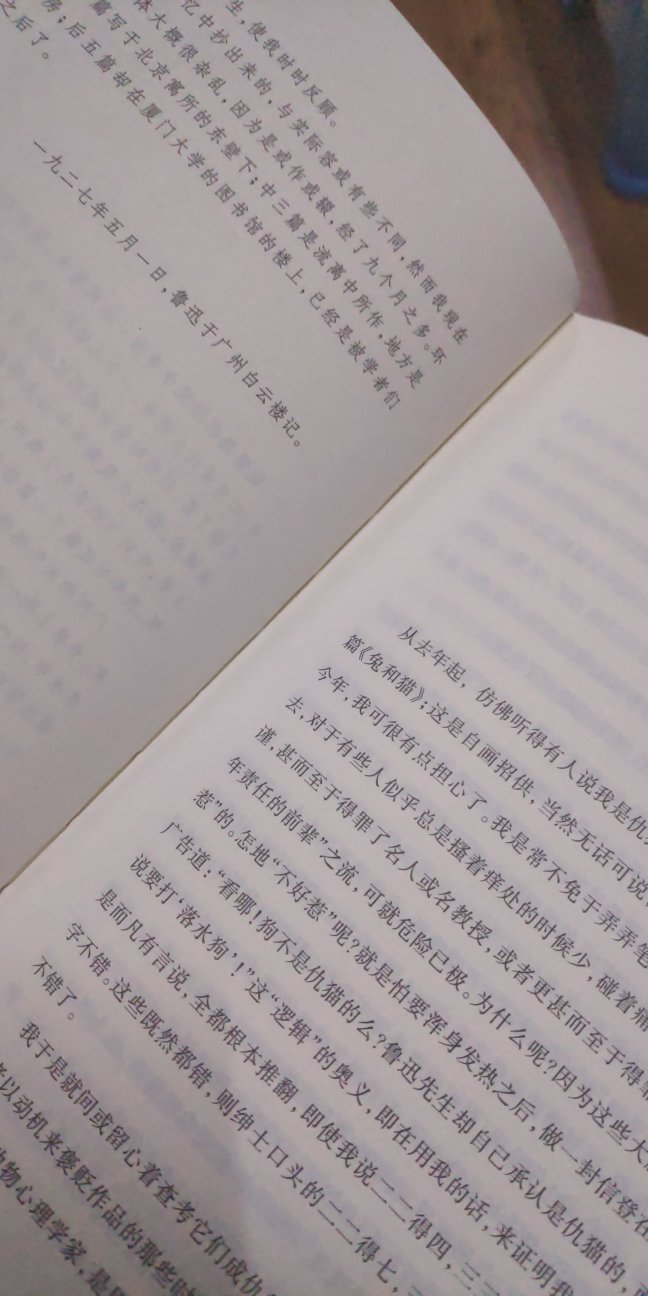 生，使我时时反顾。
忆中抄出来的，与实际容或有些不同，然而我现在
体大概很杂乱，因为是或作或辍，经了九个月之多。环
篇写于北京寓所的东壁下；中三篇是流离中所作，地方是
；后五篇却在厦门大学的图书馆的楼上，已经是被学者们
之后了。
一九二七年五月一日，鲁迅于广州白云楼记。
从去年起，仿佛听得有人说我是仇
篇《兔和猫》；这是自画招供，当然无话可说
今年，我可很有点担心了。我是常不免于弄弄笔
去，对于有些人似乎总是搔着痒处的时候少，碰着痛
谨，甚而至于得罪了名人或名教授，或者更甚而至于得罪
年责任的前辈”之流，可就危险已极。为什么呢？因为这些大
惹”的。怎地“不好惹”呢？就是怕要浑身发热之后，做一封信登在
广告道：“看哪！狗不是仇猫的么？鲁迅先生却自己承认是仇猫的，而
说要打‘落水狗’！”这“逻辑”的奥义，即在用我的话，来证明我
是而凡有言说，全都根本推翻，即使我说二二得四，三三
字不错。这些既然都错，则绅士口头的二二得七，三
不错了。
我于是就间或留心着查考它们成仇
以动机来褒贬作品的那些时
物心理学家，是